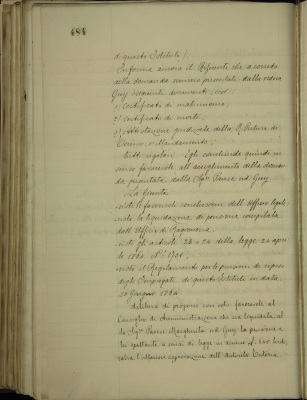 484
di questo Istituto).
Informa ancora il Riferente che a corredo
della domanda vennero presentati dalla vedova
Guy i seguenti documenti cioè:
1) certificato di matrimonio;
2) certificato di morte;
3) Attestazione giudiziale della R. Pretura di
Torino,
tutti regolari. Egli conchiude quindi in
senso favorevole all'accoglimento della doman-
da presentata dalla Sigra ved. Guy.
La Giunta
viste le favorevoli conclusioni dell'Ufficio legale,
vista la liquidazione di pensione compilata
dall'Ufficio di Ragioneria.
visti gli articoli 22 e 24 della legge 14 apri-
le 1864 N° 1731
visto il Regolamento per le pensioni di riposo
degli Impiegati di questo Istituto in data
delibera di proporre con voto favorevole al
Consiglio di Amministrazione che sia liquidata al-
la Sigra Margherita ved. Guy la pensione a
lei spettante a mini di legge in annue L. 600 lorde,
salva l'ulteriore approvazione dell'Autorità Tutoria.